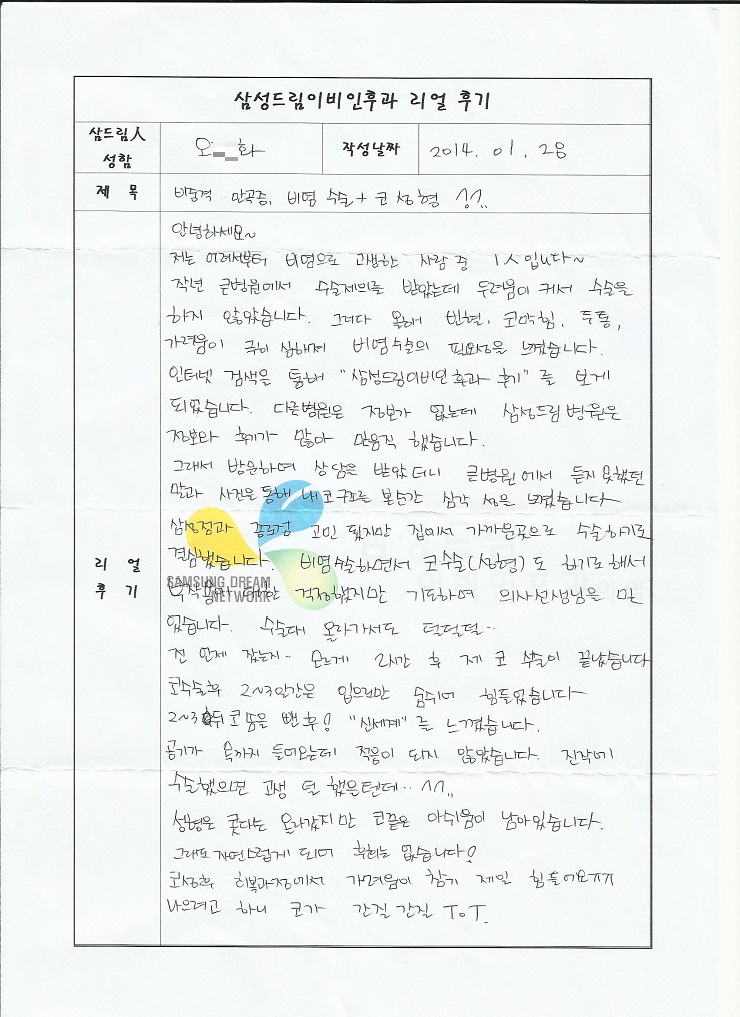 삼성드림이비인후과 리얼 후기
삼드림人 성함
오 화
작성날짜
2014. 01. 28
제 목
비중격 만곡증, 비염 수술 + 코 성형 ^^..
리 얼
후 기
안녕하세요~
저는 어려서부터 비염으로 고생한 사람 중 1人입니다~
작년 큰병원에서 수술제의를 받았는데 두려움이 커서 수술을
하지 않았습니다. 그러다 올해 빈혈, 코막힘, 두통,
가려움이 극히 심해져 비염수술의 필요성을 느꼈습니다.
인터넷 검색을 통해 "삼성드림이비인후과 후기"를 보게
되었습니다. 다른병원은 정보가 없는데 삼성드림병원은
정보와 후기가 많아 믿음직 했습니다.
그래서 방문하여 상담을 받았더니 큰병원에서 듣지 못했던
말과 사진을 통해 내 코구조를 본순간 심각 성을 느꼈습니다~
삼성점과 고민 됬지만 집에서 가까운곳으로 수술하기로
결심했습니다. 비염수술하면서 코수술(성형)도 하기로해서
걱정했지만 기도하며 의사선생님을 믿
었습니다. 수술대 올라가서도 덜덜덜..
전 언제 잤는지.. 모르게 2시간 후 제 코 수술이 끝났습니다
코수술후 2~3일간은 입으로만 숨쉬어 힘들었습니다~
2~3 뒤 코 뺀 후! "신세계"를 느꼈습니다.
공기가 속까지 들어오는데 적응이 되지 않았습니다. 진작에
수술했으면 고생 덜 했을텐데.. ^^..
성형은 콧대는 올라갔지만 코끝은 아쉬움이 남아있습니다.
그래도 자연스럽게 되어 후회는 없습니다!
코성형 회복과정에서 가려움이 참기 제일 힘들어요ㅠㅠ
나으려고 하니 코가 간질 간질 ToT.
SAMSUNG DREAM
NETWORK